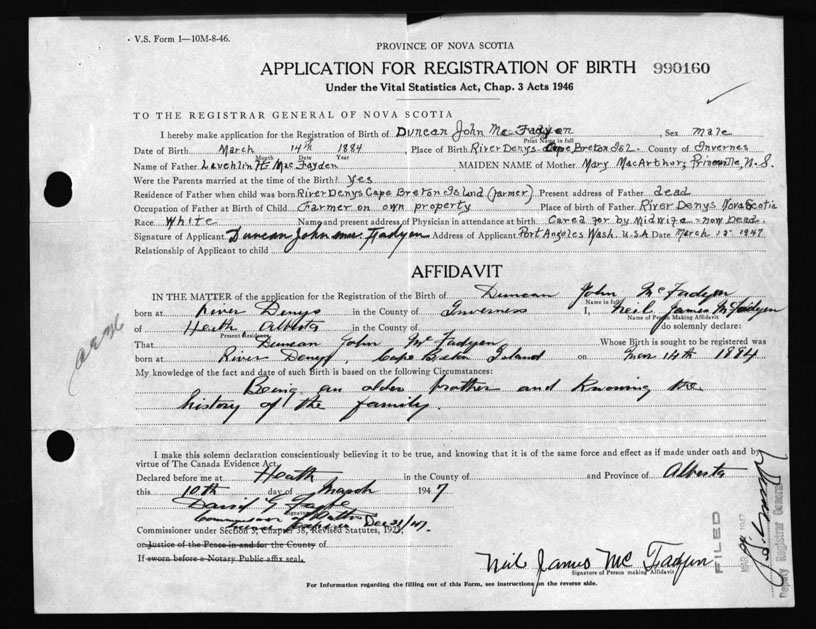 V.S. Form 1—10M-8-46.
PROVINCE OF NOVA SCOTIA
APPLICATION FOR REGISTRATION OF BIRTH 990160
Under the Vital Statistics Act, Chap. 3 Acts 1946
TO THE REGISTRAR GENERAL OF NOVA SCOTIA
I hereby make application for the Registration of Birth of Duncan John Mc Fadyen, Sex male
Print Name in full
Date of Birth March 14th 1884 Place of Birth River Denys Cape Breton Isl. County of Invernes
Month Date Year
Name of Father Lauchlin H. MacFayden MAIDEN NAME of Mother Mary MacArthor, Princeville, N.S.
Were the Parents married at time of the Birth? Yes
Residence of Father when child was born River Denys Cape Breton Island (farmer) Present address of Father dead
Occupation of Father at Birth of Child Farmer on own property Place of birth of Father River Denys Nova Scotia
Race White Name and present address of Physician in attendance at birth Cared for by Midwife - now Dead.
Signature of Applicant Duncan John Fadyen Address of Applicant Port Angeles Wash. U.S.A Date March 1947
Relationship of Applicant to child
AFFIDAVIT
IN THE MATTER of the application for the Registration of the Birth of Duncan John McFadyen
Name in full
born at River Denys in the County of Inverness I, Neil James McFadyen
Name of Person Making Affidavit
of Heath, Alberta in the County of do solemnly declare:
Present Residence
That Duncan John McFadyen Whose Birth is sought to be registered was
born at River Denys, Cape Breton Island on Mar 14th 1884
My knowledge of the fact and date of such Birth is based on the following Circumstances:
Being an older brother and knowing the
history of the family.
I make this solemn declaration conscientiously believing it to be true, and knowing that it is of the same force and effect as if made under oath and by
virtue of The Canada Evidence Act.
Declared before me at Heath in the County of and Province of Alberta
this 10th day of March 1947
David G.
Commissioner Dec 31/47.
Commissioner under Section 3, Chapter 38, Revised Statutes, 192
or Justice of the Peace in and for the County of
If sworn before a Notary Public affix seal.
Neil James McFadyen
Signature of Person making Affidavit
For Information regarding the filling out of this Form, see instructions on the reverse side.
FILED
Deputy Registrar General